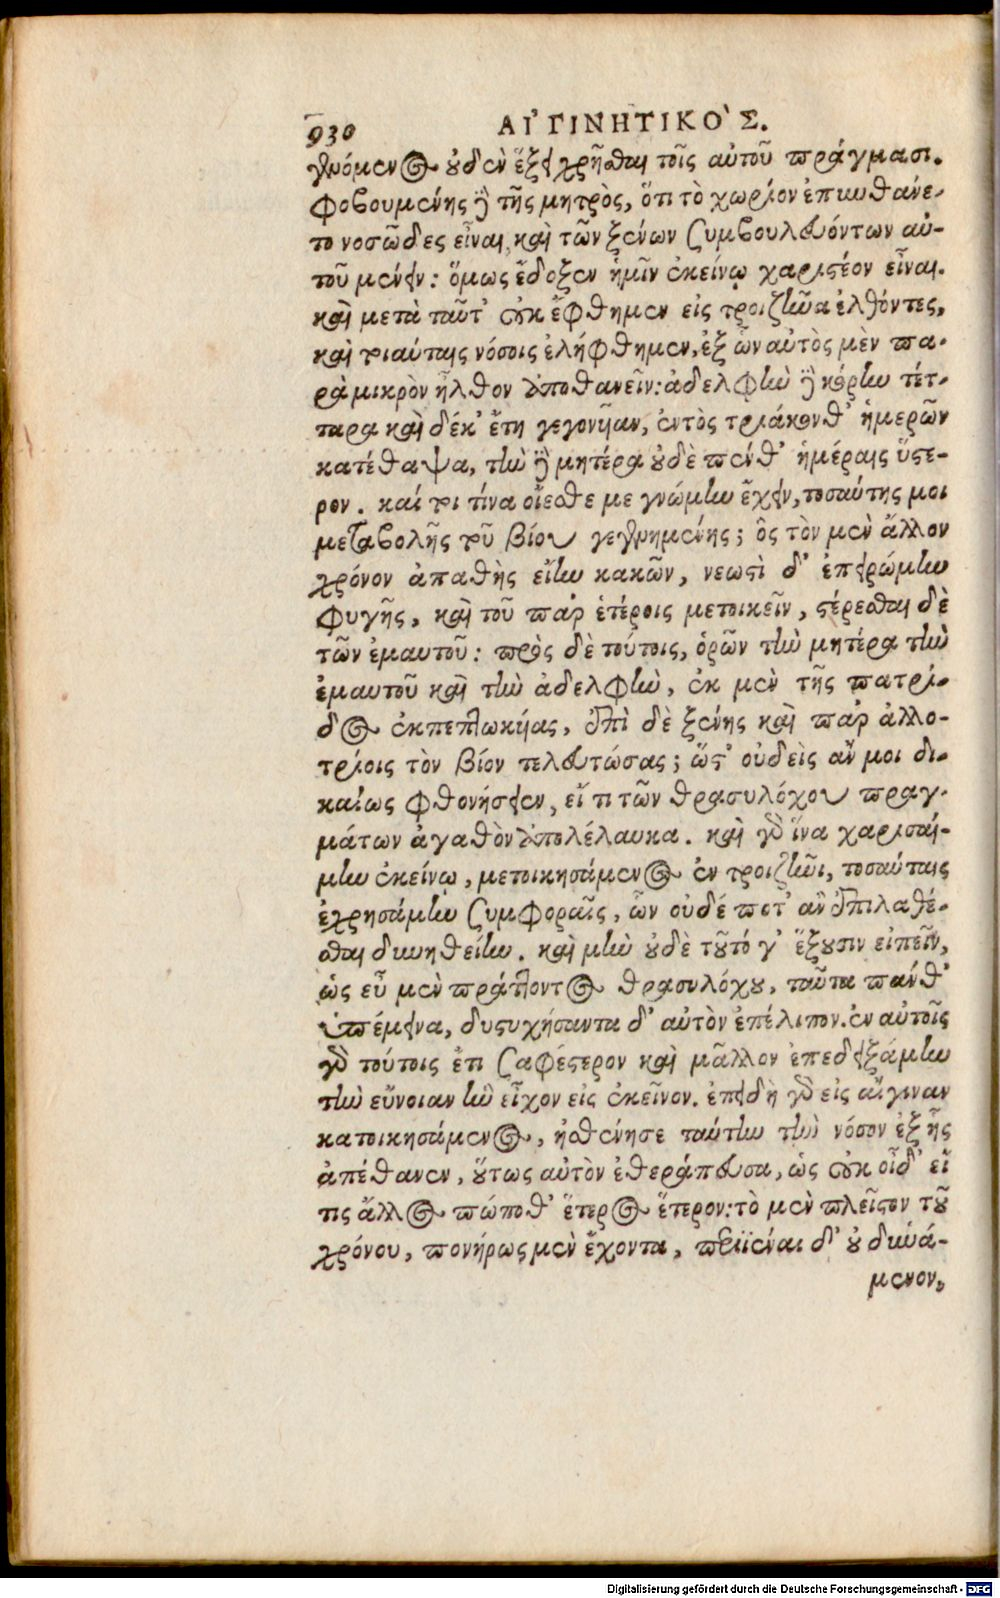 930 ΑἸΓΙΝΗΤΙΚΟ`Σ.
γνόμενος οὐδὲν ἕξει χρῆσθαι τοῖς αὐτοῦ πράγμασι.
φοβουμένης δὲ τῆς μητρὸς, ὅτι τὸ χωρίον ἐπυνθάνε-
το νοσῶδες εἶναι, καὶ τῶν ξένων συμβουλευόντων αὐ-
τοῦ μένειν: ὅμως ἔδοξεν ἡμῖν ἐκείνῳ χαριστέον εἶναι.
καὶ μετὰ ταῦτ' οὐκ ἔφθημεν εἰς τροιζῆνα ἐλθόντες,
καὶ τοιαύταις νόσοις ἐλήφθημεν, ἐξ ὧν αὐτὸς μὲν πα-
ρὰ μικρὸν ἦλθον ἀποθανεῖν: ἀδελφὴν δὲ κόρην τέτ-
ταρα καὶ δέκ' ἔτη γεγονυῖαν, ἐντὸς τριάκονθ' ἡμερῶν
κατέθαψα, τὴν δὲ μητέρα οὐδὲ πένθ' ἡμέραις ὕστε-
ρον. καί τοι τίνα οἴεσθε με γνώμην ἔχειν, τοσαύτης μοι
μεταβολῆς τοῦ βίου γεγενημένης; ὃς τὸν μὲν ἄλλον
χρόνον ἀπαθὴς εἴην κακῶν, νεωστὶ δ' ἐπειρώμην
φυγῆς, καὶ τοῦ παρ' ἑτέροις μετοικεῖν, στέρεσθαι δὲ
τῶν ἐμαυτοῦ: πρὸς δὲ τούτοις, ὁρῶν τὴν μητέρα τὴν
ἐμαυτοῦ καὶ τὴν ἀδελφὴν, ἐκ μὲν τῆς πατρί-
δος ἐκπεπτωκυίας, ἐπὶ δὲ ξένης καὶ παρ' ἀλλο-
τρίοις τὸν βίον τελευτώσας; ὥστ' οὐδεὶς ἄν μοι δι-
καίως φθονήσειεν, εἴ τι τῶν θρασυλόχου πραγ-
μάτων ἀγαθὸν ἀπολέλαυκα. καὶ γὰρ ἵνα χαρισαί-
μην ἐκείνῳ, μετοικησάμενος ἐν τροιζῆνι, τοσαύταις
ἐχρησάμην συμφοραῖς, ὧν οὐδέ ποτ' ἂν ἐπιλαθέ-
σθαι δυνηθείην. καὶ μὴν οὐδὲ τοῦτό γ' ἕξουσιν εἰπεῖν,
ὡς εὖ μὲν πράττοντος θρασυλόχου, ταῦτα πάνθ'
ὑπέμεινα, δυστυχήσαντα δ' αὐτὸν ἐπέλιπον. ἐν αὐτοῖς
γὰρ τούτοις ἔτι σαφέστερον καὶ μᾶλλον ἐπεδειξάμην
τὴν εὔνοιαν ἣν εἶχον εἰς ἐκεῖνον. ἐπειδὴ γὰρ εἰς αἴγιναν
κατοικησάμενος, ἠσθένησε ταύτην τὴν νόσον ἐξ ἧς
ἀπέθανεν, οὕτως αὐτὸν ἐθεράπευσα, ὡς οὐκ οἶδ' εἴ
τις ἄλλος πώποθ' ἕτερος ἕτερον: τὸ μὲν πλεῖστον τοῦ
χρόνου, πονήρως μὲν ἔχοντα, περιϊέναι δ' οὐ δυνά-
μενον,
Digitalisierung gefördert durch die Deutsche Forschungsgemeinschaft - DFG